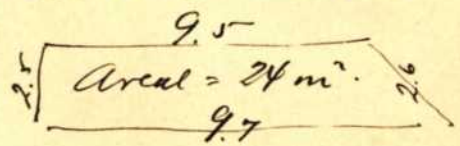 9.5
2.5 Areal = 24 m². 2.6
9.7